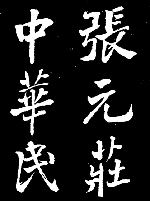 張元莊
中華民